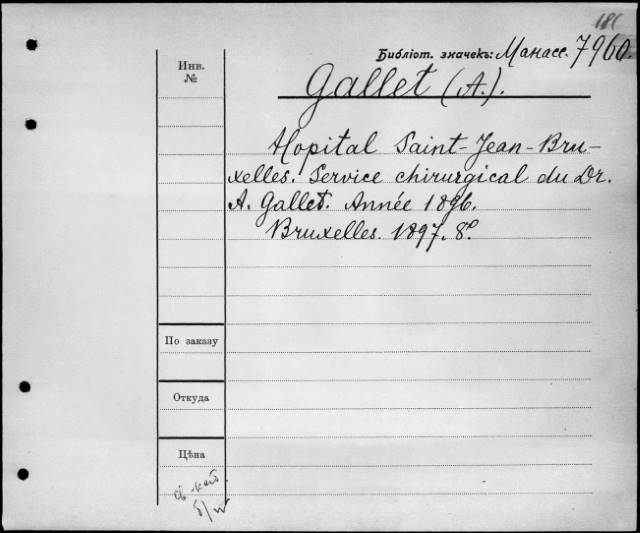 Библіот. значекъ: Манасс. 7960.
Инв.
№
Gallet (A.).
Hopital Saint-Jean-Bru-
xelles. Service chirurgical du Dr.
A. Gallet. Année 1896.
Bruxelles. 1897. 8º.
По заказу
Откуда
Цѣна